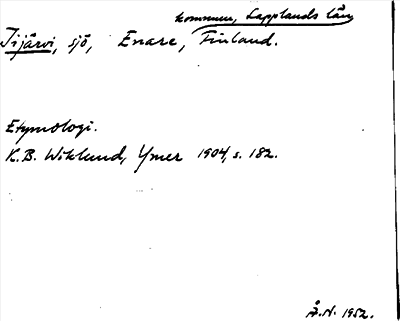 kommun, Lapplands län
Iijärvi, sjö, Enare, Finland.
Etymologi.
K.B. Wiklund, Ymer 1904, s. 182.
Å.N. 1952.